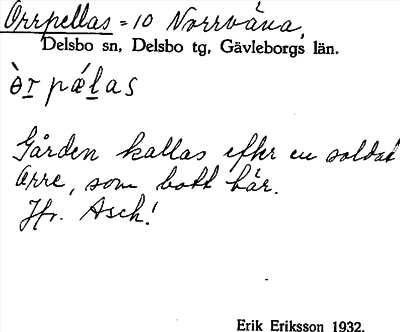 Orrpellas = 10 Norrväna,
Delsbo sn, Delsbo tg, Gävleborgs län.
ò̱r pǽḻas
Gården kallas efter en soldat
Orre, som bott här.
Jfr. Asch!
Erik Eriksson 1932.